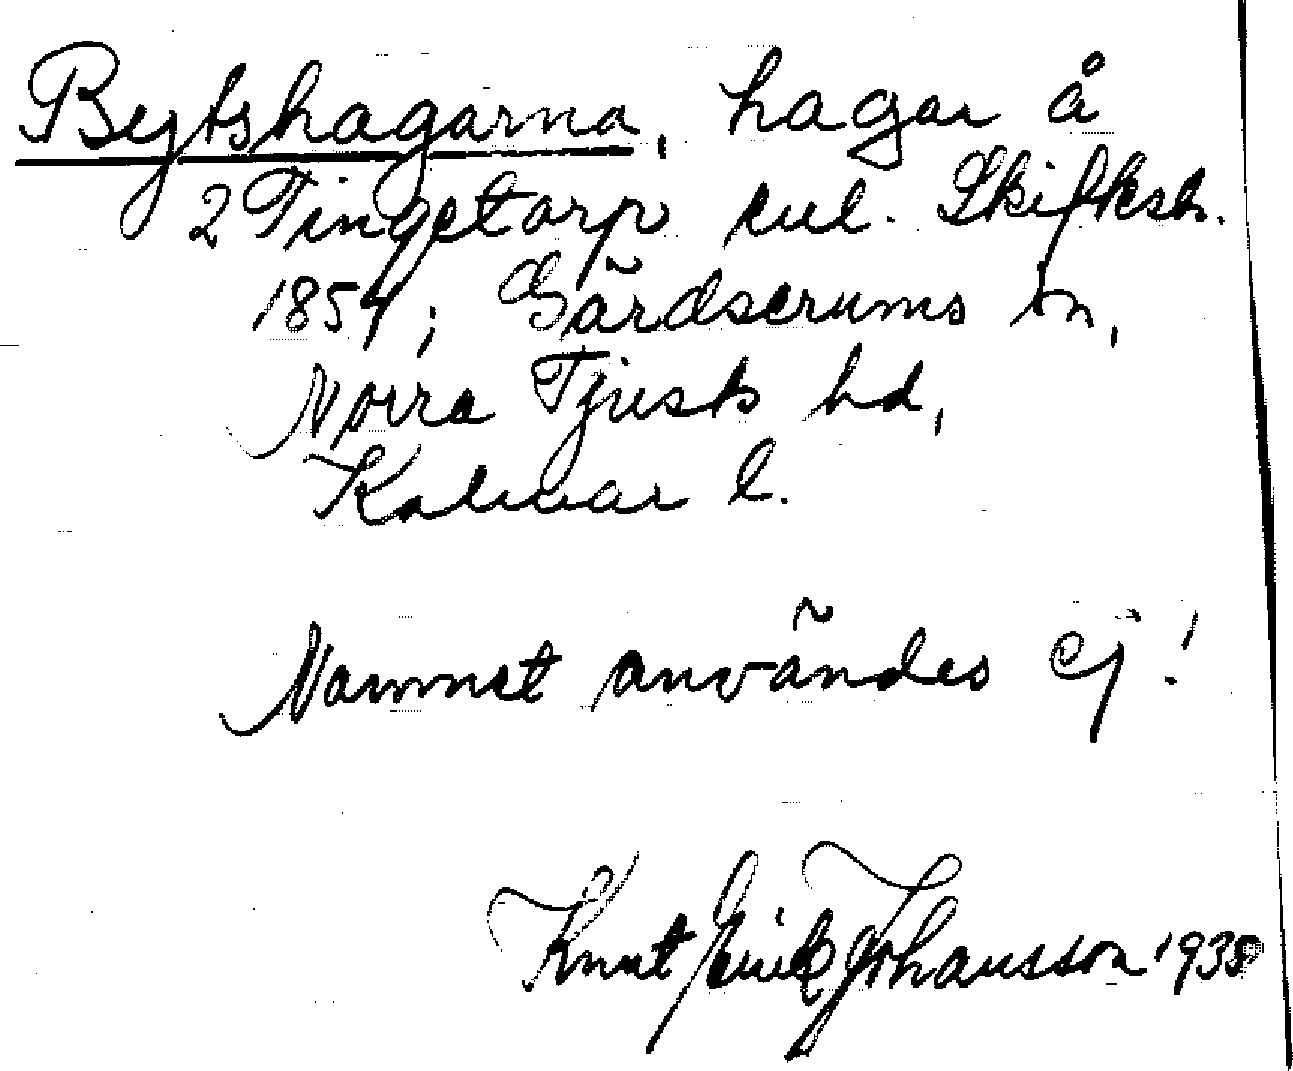 Bytshagarna, hagar å
2 Tingetorp enl. Skifteskt.
1854; Gärdserums sn,
Norra Tjusts hd,
Kalmar l.
Namnet användes ej!
Knut Erik Johansson 1938